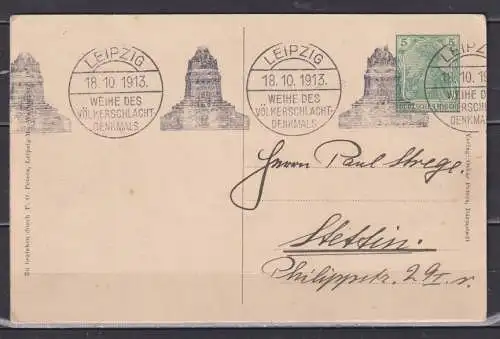 LEIPZIG
18.10.1913.
WEIHE DES
VÖLKERSCHLACHT-
DENKMALS
LEIPZIG
18.10.1913.
WEIHE DES
VÖLKERSCHLACHT-
DENKMALS
5 5
LEIPZIG
18.10.19
WEIHE DES
VÖLKERSCH
DENKMA
Herrn Paul Strege.
Stettin.
Philippstr. 29 I. r.
Zu beziehen durch
Leipzig
Verlag: